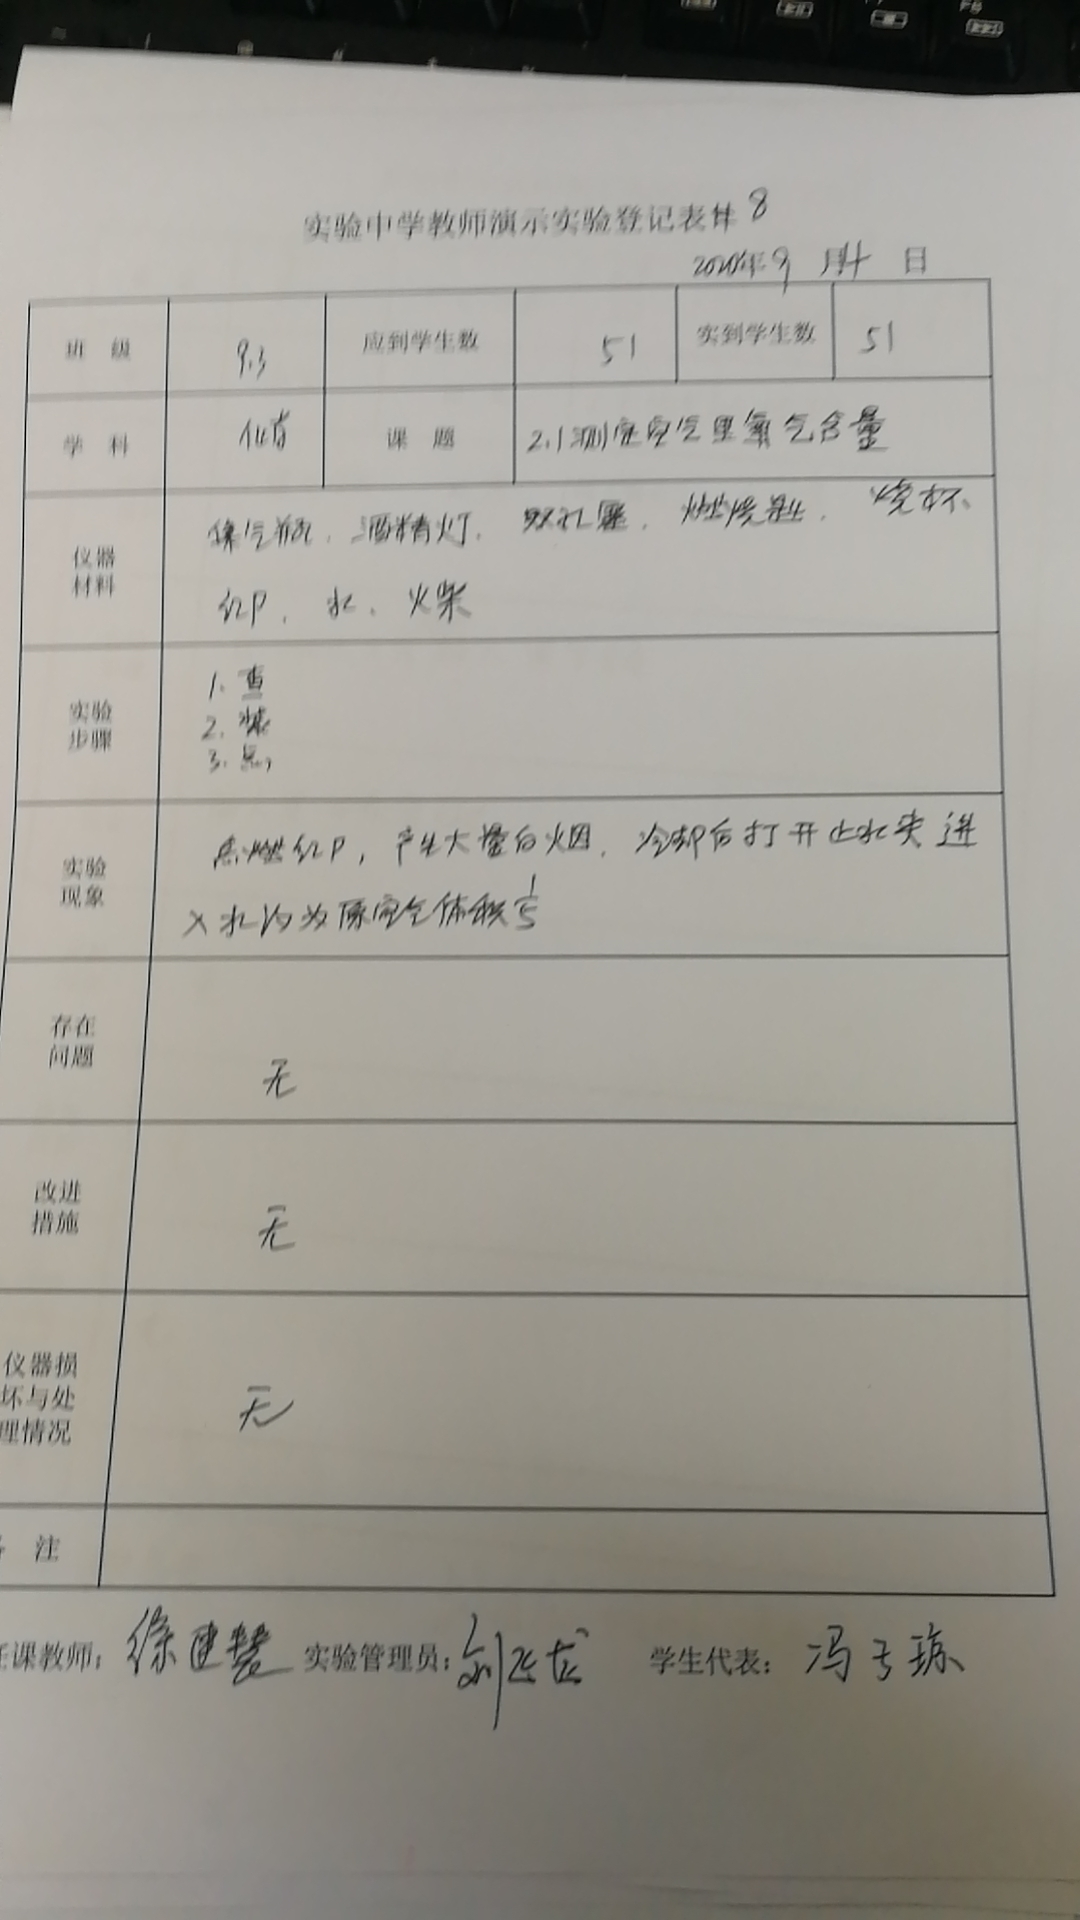 实验中学教师演示实验登记表# 8
2020年9月4日
班 级 9.3 应到学生数 51 实到学生数 51
学 科 化学 课 题 2.1测定空气里氧气含量
仪器
材料
集气瓶、酒精灯、双孔塞、燃烧匙、烧杯
红P、水、火柴
实验
步骤
1. 查
2. 装
3. 点
实验
现象
点燃红P，产生大量白烟、冷却后打开止水夹进
入水约为原空气体积1/5
存在
问题
无
改进
措施
无
仪器损
坏与处
理情况
无
注
任课教师：徐建慧 实验管理员：刘 学生代表：冯子琼